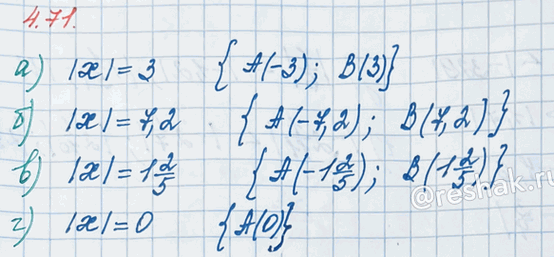 4.71.
а) |x| = 3 { A(-3); B(3)}
б) |x| = 7,2 { A(-7,2); B(7,2)}
в) |x| = 1 2/5 { A(-1 2/5); B(1 2/5)}
г) |x| = 0 {A(0)}
@reshak.ru